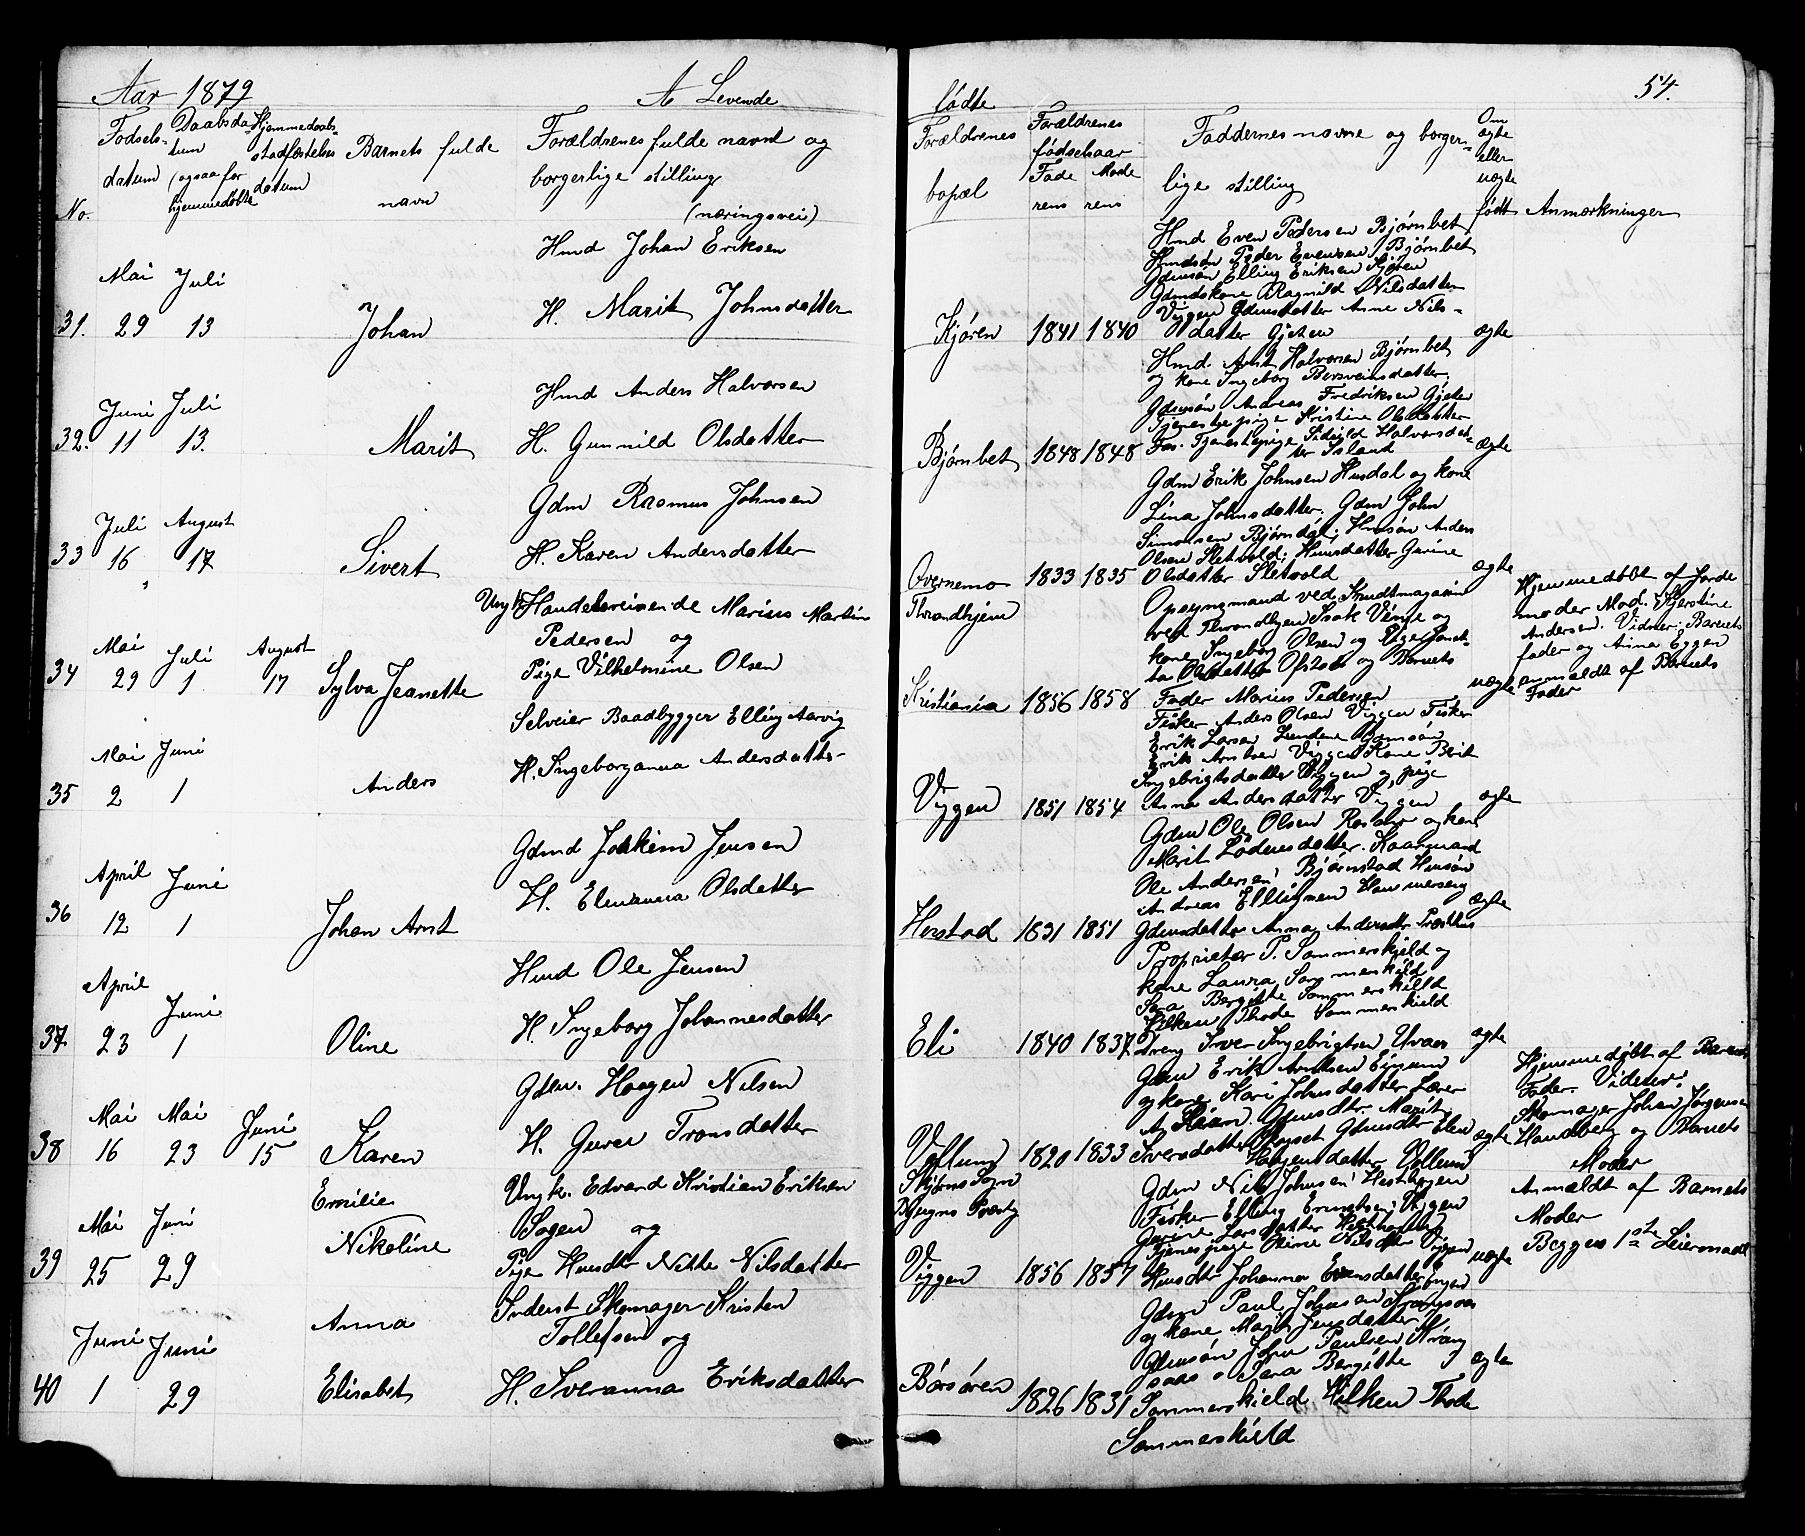 Aar 1879
A Levende
Fødsels-
datum
Daabsda-
tum
(ogsaa for
hjemmedøbte
Hjemmedaabs-
stadfæstelses
datum)
Barnets fulde
navn
Forældrenes fulde navne og
borgerlige stilling
(næringsvei)
No.
Hmd Johan Eriksen
Mai Juli
31. 29 13 Johan H. Marit Johnsdatter
Hmd Anders Halvorsen
Juni Juli
32. 11 13. Marit H. Gunnild Olsdatter
Gdm Rasmus Johnsen
Juli August
33 16 17 Sivert H. Karen Andersdatter
Ungk Handelsreisende Marius Martin
Pedersen og
Mai Juli August
34 29 1 17 Sylva Jeanette Pige Vilhelmine Olsen
Selveier Baadbygger Elling Aarvig
Mai Juni
35 2 1 Anders H. Ingeborganna Andersdatter
Gdmd Joakim Jensen
April Juni
36 12 1 Johan Arnt H. Elenanna Olsdatter
Hmd Ole Jensen
April Juni
37 23 1 Oline H. Ingeborg Johannesdatter
Gdm. Haagen Nilsen
Mai Mai Juni
38 16 23 15 Karen H. Guru Tronsdatter
Emilie Ungk. Edvard Kristian Eriksen
Mai Juni
Sogen og
39 25 29 Nikoline Pige Husdtr Nikke Nilsdatter
Inderst Skomager Kristen
Tollefsen og
Juni Juni Anna
40 1 29 Elisabet H. Iveranna Eriksdatter
54.
fødte
Forældrenes
bopæl
Forældrenes
fødselsaar
Fade Mode
rens rens
Faddernes navne og borger-
lige stilling
Om
ægte
eller
uægte
født
Anmærkninger
Hmd Even Pedersen Bjørnbet
Hmdsøn Peder Evensen Bjørnbet
Gdmsøn Elling Eriksen Kjøren
Gdmdskone Ragnild Nilsdatter
Viggen Gdmsdatter Anne Nils-
Kjøren 1841 1840 datter Gjeten ægte
Hmd. Arnt Halvorsen Bjørnbet
og kone Ingeborg Bersveinsdatter,
Gdmsøn Andreas Fredriksen Gjeten
Tjenestepige Kristine Olsdatter
Bjørnbet 1848 1848 Tjenestepige Halvorsdat- ægte
ter Island
Gdm Erik Johnsen Husdal og kone
Lina Johnsdatter. Gdm John
Simonsen Bjørndal; Hmsøn Anders
Olsen Sletvold; Husdatter Gurine
Overnemo 1833 1835 Olsdatter Sletvold ægte
Throndhjem
Opsynsmand ved Krudtmagasin
ved Throndhjem Isak Vinje og
kone Ingeborg Olsen og Pige
Olsdatter og Barnets
Kristiania 1856 1858 Fader Marius Pedersen uægte
Hjemmedøbt af Jorde
moder Mad. Kjerstine
Andersen. Vidner: Barnets
fader og Anna Eggen
anmeldt af Barnets
Fader
Fisker Anders Olsen Viggen Fisker
Erik Larsen Gdmsøn
Erik Arntsen Viggen Kone Berit
Ingebrigtsdatter Viggen og pige
Viggen 1851 1854 Anna Andersdatter Viggen ægte
Gdm Ole Olsen og kone
Marit Lodensdatter. Kaarmand
Ole Andersen Bjørnstad Hmsøn
Andreas Ellingsen Hammerseng
Herstad 1831 1851 Gdmsdatter Anna Andersdtr Præsthus ægte
Proprietær P. Sommerskjeld og
kone Laura Sommerskild
Sara Bergitte Sommerskild
Hilken Thode Sommerskield
Eli 1840 1837 Dreng Iver Ingebrigtsen Uvaas ægte
Gdm Erik Arntsen Eigum
og kone Kari Johnsdatter Lærer
A. Skaan. Gdmsdtr. Marit
Vollum 1820 1833 Iversdatter Gdmsdtr Elen ægte
Haagensdatter Vollum
Hjemmedøbt af Barnets
Fader. Vidner:
Skomager Johan Jørgensen
Hamberg og Barnets
Moder
Skjørns Sogn
Bjugns Præstg
Gdm Nils Johnsen
Fisker Elling Viggen
Gurine Larsdatter
Tjenespige Nilsdtr Viggen
Viggen 1856 1857 Husdtr Johanna Evensdatter uægte
Anmældt af Barnets
Moder
Begges 1ste Leiermaal
Gdm Paul Johnsen Krangsaas
og kone Marit Jensdatter
Gdmsøn John Paulsen Krang
saas, Sara Bergitte ægte
Børsøren 1826 1831 Sommerskield Hilken Thode
Sommerskield